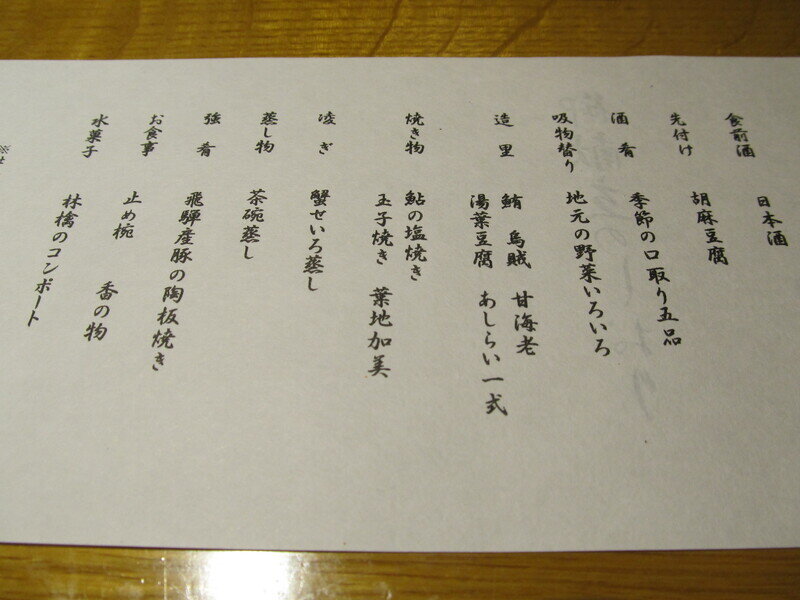 食前酒
日本酒
先付け
胡麻豆腐
酒肴
季節の口取り五品
吸物替り
地元の野菜いろいろ
造里
鮪 烏賊 甘海老
湯葉豆腐 あしらい一式
焼き物
鮎の塩焼き
玉子焼き 葉地加美
凌ぎ
蟹せいろ蒸し
蒸し物
茶碗蒸し
強肴
飛騨産豚の陶板焼き
お食事
止め椀 香の物
水菓子
林檎のコンポート